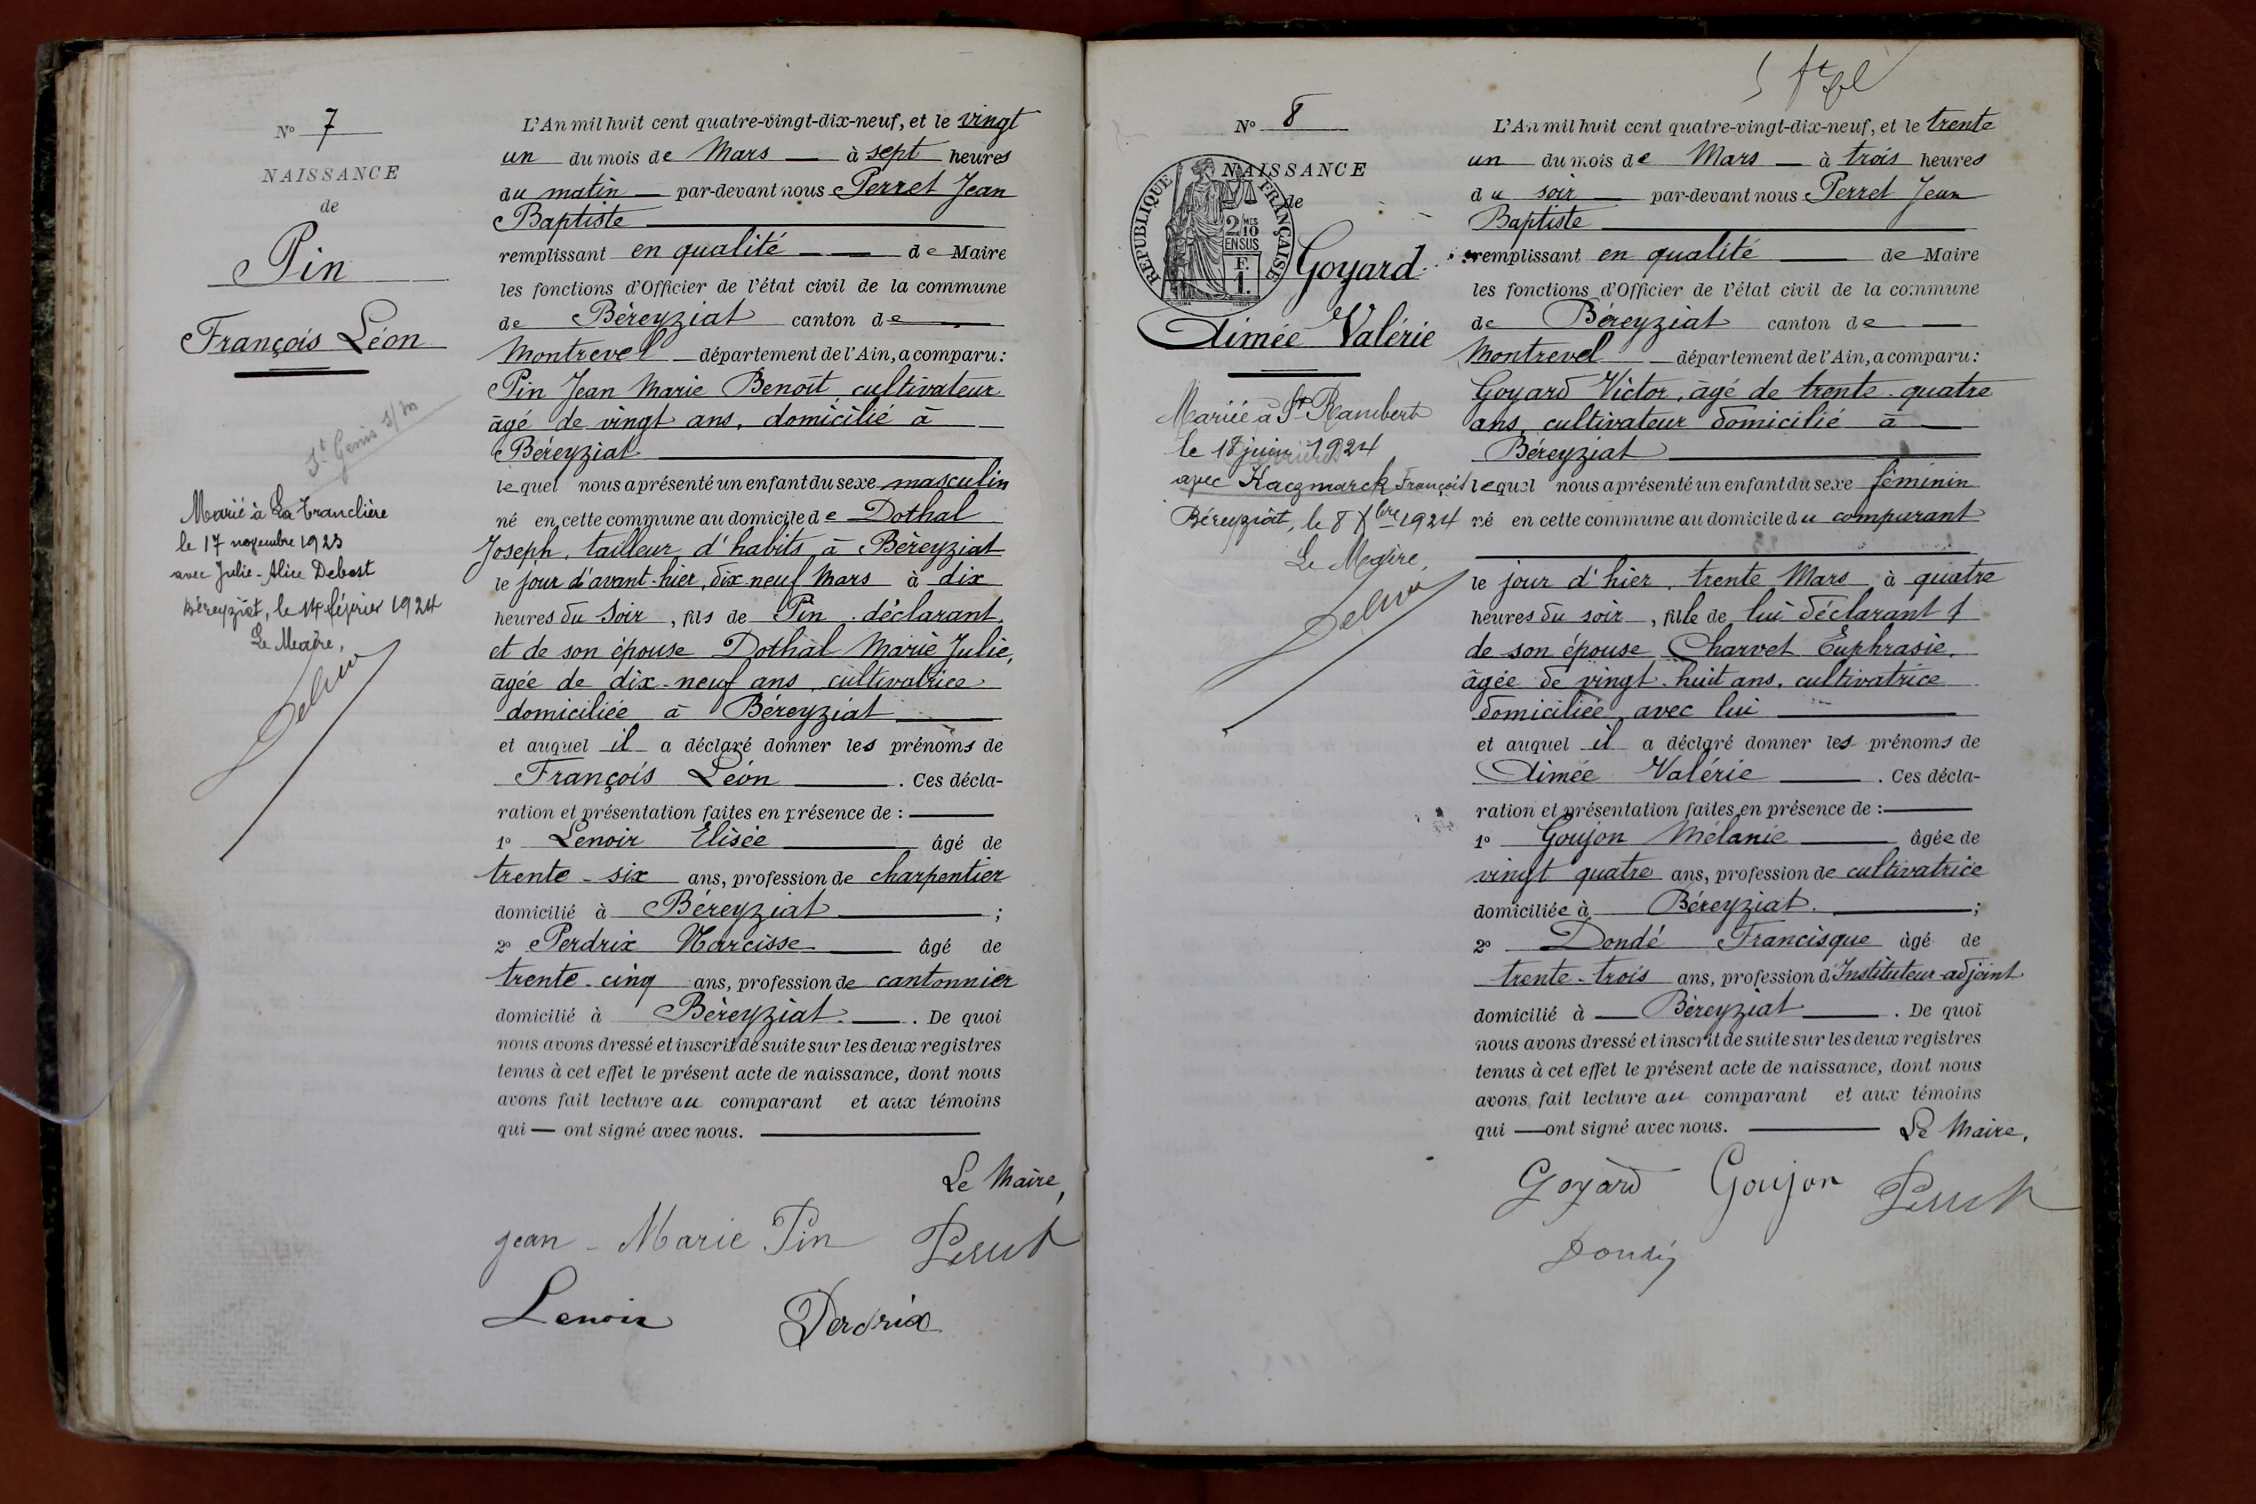 N° 7
NAISSANCE
de
Pin
François Léon
St Genis s/m
Marié à La Tranclière
le 17 novembre 1923
avec Julie-Alice Debost
Béreyziat, le 14 février 1924
Le Maire,
L'An mil huit cent quatre-vingt-dix-neuf, et le vingt
un du mois de Mars à sept heures
du matin par-devant nous Perret Jean
Baptiste
remplissant en qualité de Maire
les fonctions d'Officier de l'état civil de la commune
de Béreyziat canton de
Montrevel département de l'Ain, a comparu :
Pin Jean Marie Benoît, cultivateur
âgé de vingt ans, domicilié à
Béreyziat
lequel nous a présenté un enfant du sexe masculin
né en cette commune au domicile de Dothal
Joseph, tailleur d'habits à Béreyziat
le jour d'avant-hier, dix-neuf Mars à dix
heures du soir, fils de Pin déclarant,
et de son épouse Dothal Marie Julie,
âgée de dix-neuf ans, cultivatrice
domiciliée à Béreyziat
et auquel il a déclaré donner les prénoms de
François Léon. Ces décla-
ration et présentation faites en présence de :
1° Lenoir Elisée âgé de
trente-six ans, profession de charpentier
domicilié à Béreyziat ;
2° Perdrix Narcisse âgé de
trente-cinq ans, profession de cantonnier
domicilié à Béreyziat. De quoi
nous avons dressé et inscrit de suite sur les deux registres
tenus à cet effet le présent acte de naissance, dont nous
avons fait lecture au comparant et aux témoins
qui — ont signé avec nous.
Le Maire,
jean - Marie Pin Perret
Lenoir Perdrix
N° 8
NAISSANCE
de
RÉPUBLIQUE FRANÇAISE
2 MES 10
EN SUS
F.
1.
Goyard
Aimée Valérie
Mariée à St Rambert
le 18 juin 1924
avec Kaczmarck François
Béreyziat, le 8 Xbre 1924
Le Maire,
L'An mil huit cent quatre-vingt-dix-neuf, et le trente
un du mois de Mars à trois heures
du soir par-devant nous Perret Jean
Baptiste
remplissant en qualité de Maire
les fonctions d'Officier de l'état civil de la commune
de Béreyziat canton de
Montrevel département de l'Ain, a comparu :
Goyard Victor, âgé de trente-quatre
ans, cultivateur domicilié à
Béreyziat
lequel nous a présenté un enfant du sexe féminin
né en cette commune au domicile du comparant
le jour d'hier, trente Mars à quatre
heures du soir, fille de lui déclarant &
de son épouse Charvet Euphrasie,
âgée de vingt-huit ans, cultivatrice
domiciliée avec lui
et auquel il a déclaré donner les prénoms de
Aimée Valérie. Ces décla-
ration et présentation faites en présence de :
1° Goujon Mélanie âgée de
vingt quatre ans, profession de cultivatrice
domiciliée à Béreyziat. ;
2° Dondé Francisque âgé de
trente-trois ans, profession d'Instituteur-adjoint
domicilié à Béreyziat. De quoi
nous avons dressé et inscrit de suite sur les deux registres
tenus à cet effet le présent acte de naissance, dont nous
avons fait lecture au comparant et aux témoins
qui — ont signé avec nous.
Le Maire,
Goyard Goujon Perret